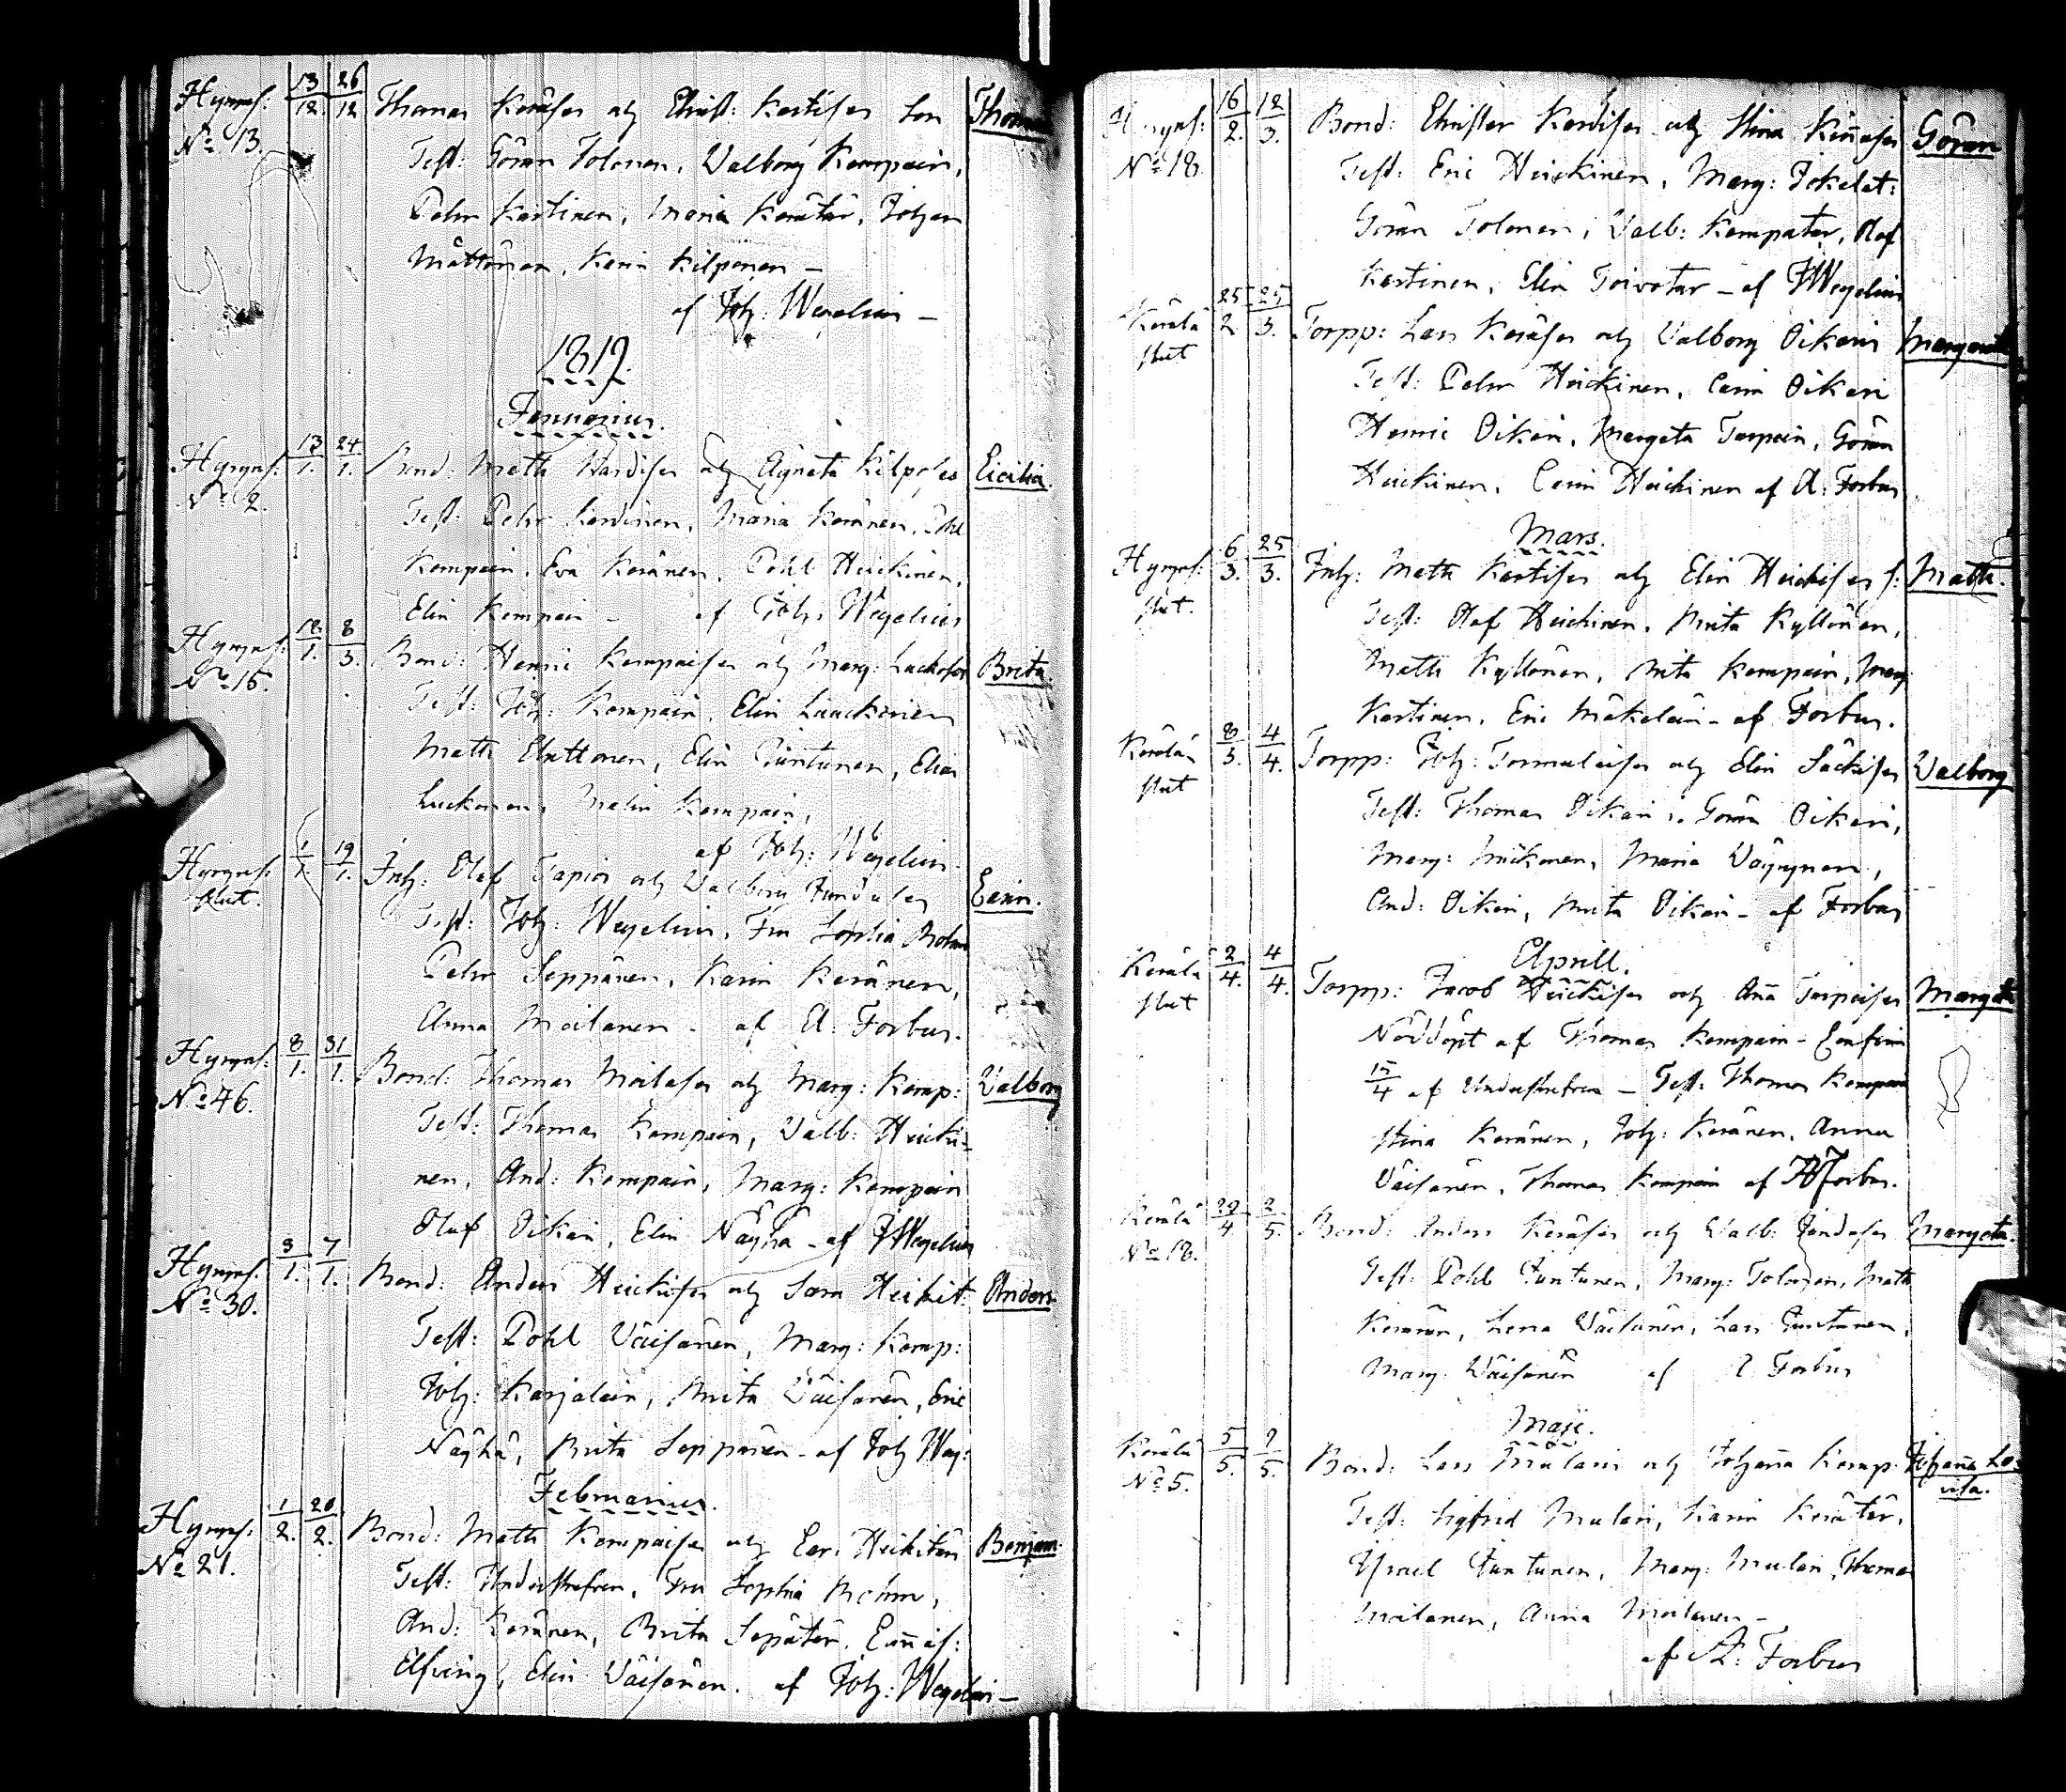 Hyryns: 13/12. 26/12 Thomas Keräses och Christ: Kertises Son Thomas
No 13. Test: Göran Tolonen, Walborg Kempain,
Pehr Kertinen, Maria Kerätär, Johan
Mättönen, Karin Kilponen –
af Joh: Wegelius –
1819.
Januarius.
Hyryns: 13/1. 24/1. Bond: Matts Kardises och Agneta Kilposes Cicilia.
No 2. Test: Pehr Kardinen, Maria Keränen, Pohl
Kempain, Eva Keränen, Pohl Heickinen,
Elin Kempain – af Joh: Wegelius
Hyryns: 18/1. 8/3. Bond: Henric Kempaises och Marg: Luckoses Brita.
No 15. Test: Joh: Kempain, Elin Luuckonen
Matts Huttonen, Elin Juntunen, Elias
Luckonen, Malin Kempain,
af Joh: Wegelius.
Hyryns: 1/1. 19/1. Inh: Olof Tapios och Walborg Jundules Carin.
slut. Test: Joh: Wegelius, Fru Sophia Bohm
Pehr Seppänen, Karin Keränen,
Anna Moilanen – af A: Forbus.
Hyryns: 8/1. 31/1. Bond: Thomas Moilases och Marg: Kemp: Walborg
No 46. Test: Thomas Kempain, Valb: Heicki-
nen, And: Kempain, Marg: Kempain
Olof Oikari, Elin Näyhä – af JWegelius
Hyryns: 3/1. 7/1. Bond: Anders Heickises och Sara Heikit: Anders.
No 30. Test: Pohl Väisänen, Marg: Kemp:
Joh: Karjalain, Brita Väisänen, Eric
Näyhä, Brita Seppänen – af Joh Weg:
Februarius.
Hyryns: 1/2. 20/2. Bond: Matts Kempaises och Car. Heikitär Benjam.
No 21. Test: Underskrefven, Fru Sophia Bohm,
And: Keränen, Brita Sepätär,
Elfving, Elin Väisänen. af Joh: Wegelius –
Hyryns: 16/2. 12/3. Bond: Christer Kerdises och Stina Kiñases Göran
No 18. Test: Eric Heickinen, Marg: Jokelat:
Göran Tolonen, Valb: Kempatar, Olof
Kertinen, Elin Toivotar – af JWegelius
Kerälä 25/2. 25/3. Torpp: Lars Keräses och Valborg Oikaris Margareta
slut Test: Pehr Heickinen, Carin Oikari
Henric Oikari, Margeta Tarpain, Göran
Heickinen, Carin Heickinen af A: Forbus
Mars.
Hyryns: 6/3. 25/3. Inh: Matts Kertises och Elin Heickises s: Matts.
slut. Test: Olof Heickinen, Brita Kyllönen,
Matts Kyllönen, Brita Kempain, Marg
Kertinen, Eric Mäkeläin – af Forbus.
Kerälä 8/3. 4/4. Torpp: Joh: Tormulaises och Elin Säckises Walborg
slut Test: Thomas Oikari, Göran Oikari,
Marg: Mickonen, Maria Väyrynen,
And: Oikari, Brita Oikari – af Forbus
Aprill.
Kerälä 2/4. 4/4. Torpp: Jacob Heickises och Aña Tarpaises Margeta
slut Nöddöpt af Thomas Kempain – Confirm
15/4 af Underskrefven – Test: Thomas Kempain
Stina Keränen, Joh: Keränen, Anna
Väisänen, Thomas Kempain af AForbus.
Kerälä 29/4 2/5. Bond: Anders Keräses och Valb: Jundases Margeta.
No 18. Test: Pohl Juntunen, Marg: Tolonen, Matts
Keränen, Lena Väisänen, Lars Juntunen,
Marg: Väisänen af A Forbus
Maji.
Kerälä 5/5. 9/5. Bond: Lars Mularis och Johaña Kemp: Johaña Lo-
No 5. visa.
Test: Sigfrid Mulari, Karin Kerätär,
Israel Juntunen, Marg: Mulari, Thomas
Moilanen, Anna Moilanen –
af A: Forbus